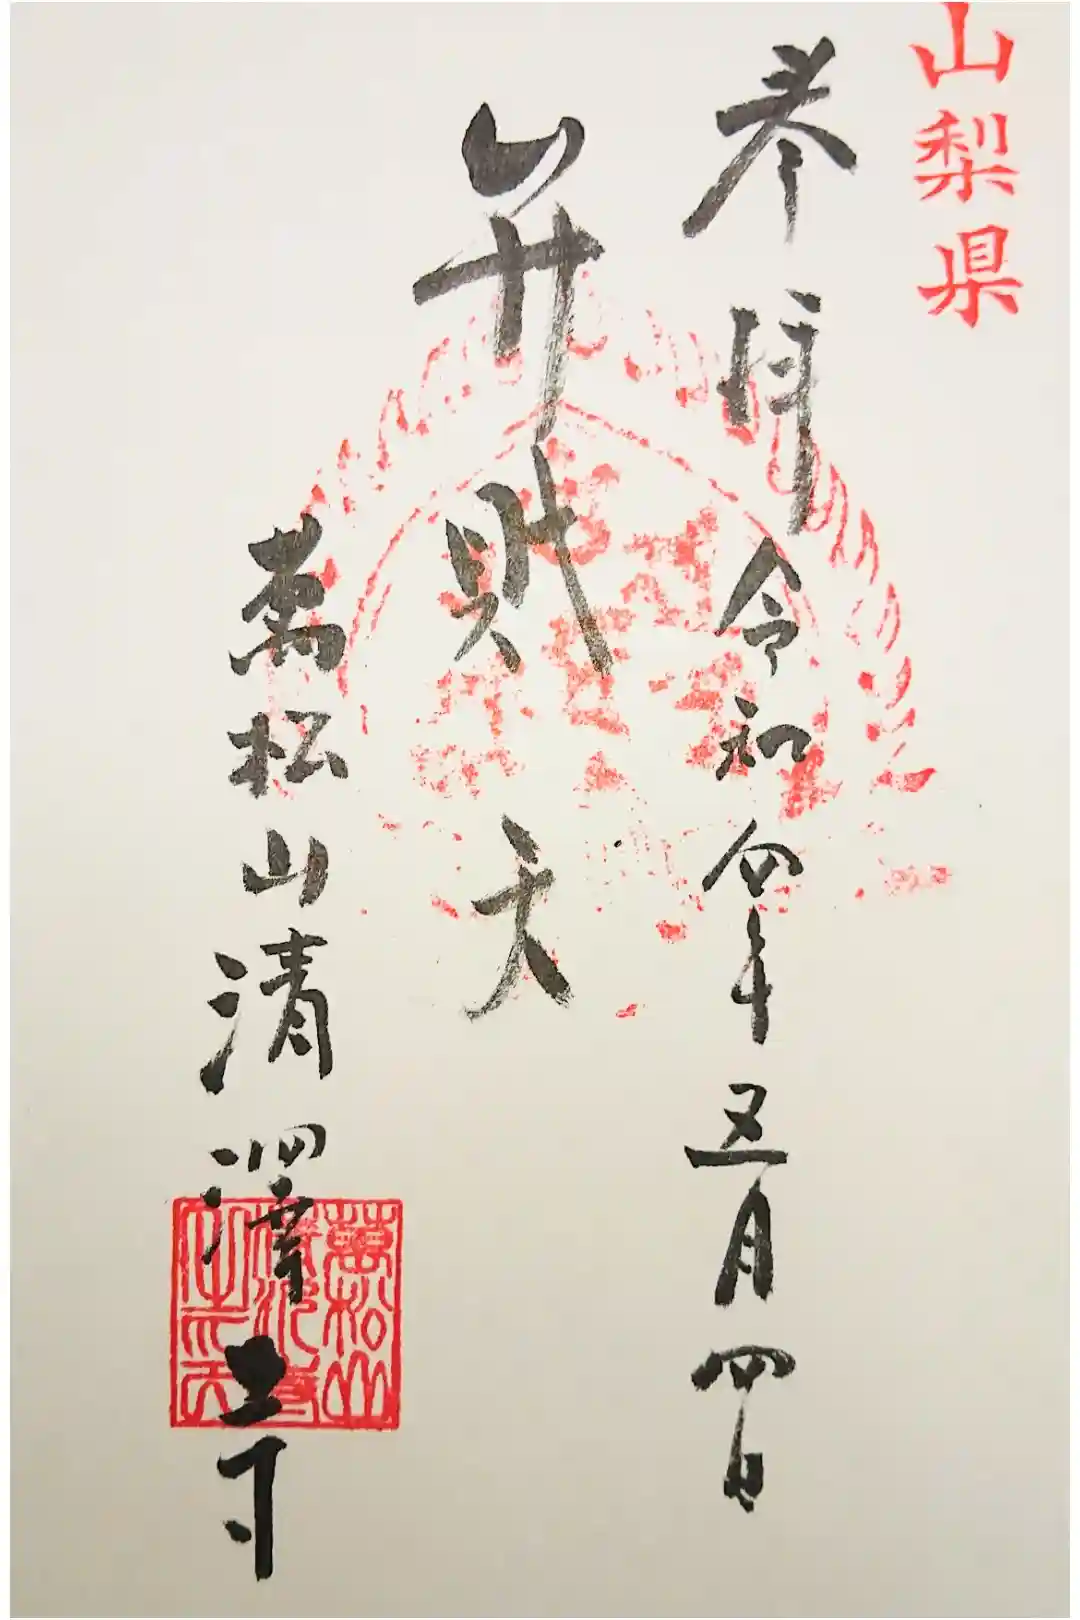 山梨県
奉拝 令和四年五月四日
弁財天
萬松山清澤寺
萬松山